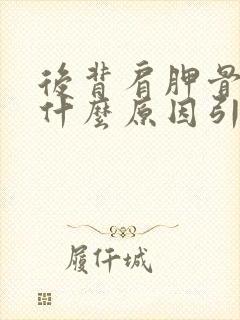 後背肩胛骨
什麼原因引
履仟城